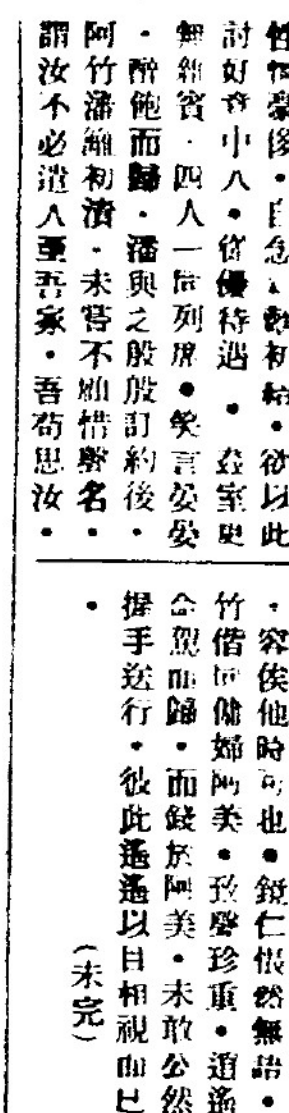 性情豪俊・自念・歡初結・欲以此
討好意中人・從優待遇・並室更
無雜賓・四人一同列席・笑言晏晏
・醉飽而歸・潘與之殷殷訂約後・
阿竹潘雖初濟・未嘗不顧惜聲名・
謂汝不必遣人至吾家・吾苟思汝・
・容俟他時可也・鏡仁悵然無語・
竹偕同傭婦阿美・致聲珍重・逍遙
命駕而歸・而錢於阿美・未敢公然
握手送行・彼此遙遙以目相視而已
・
(未完)